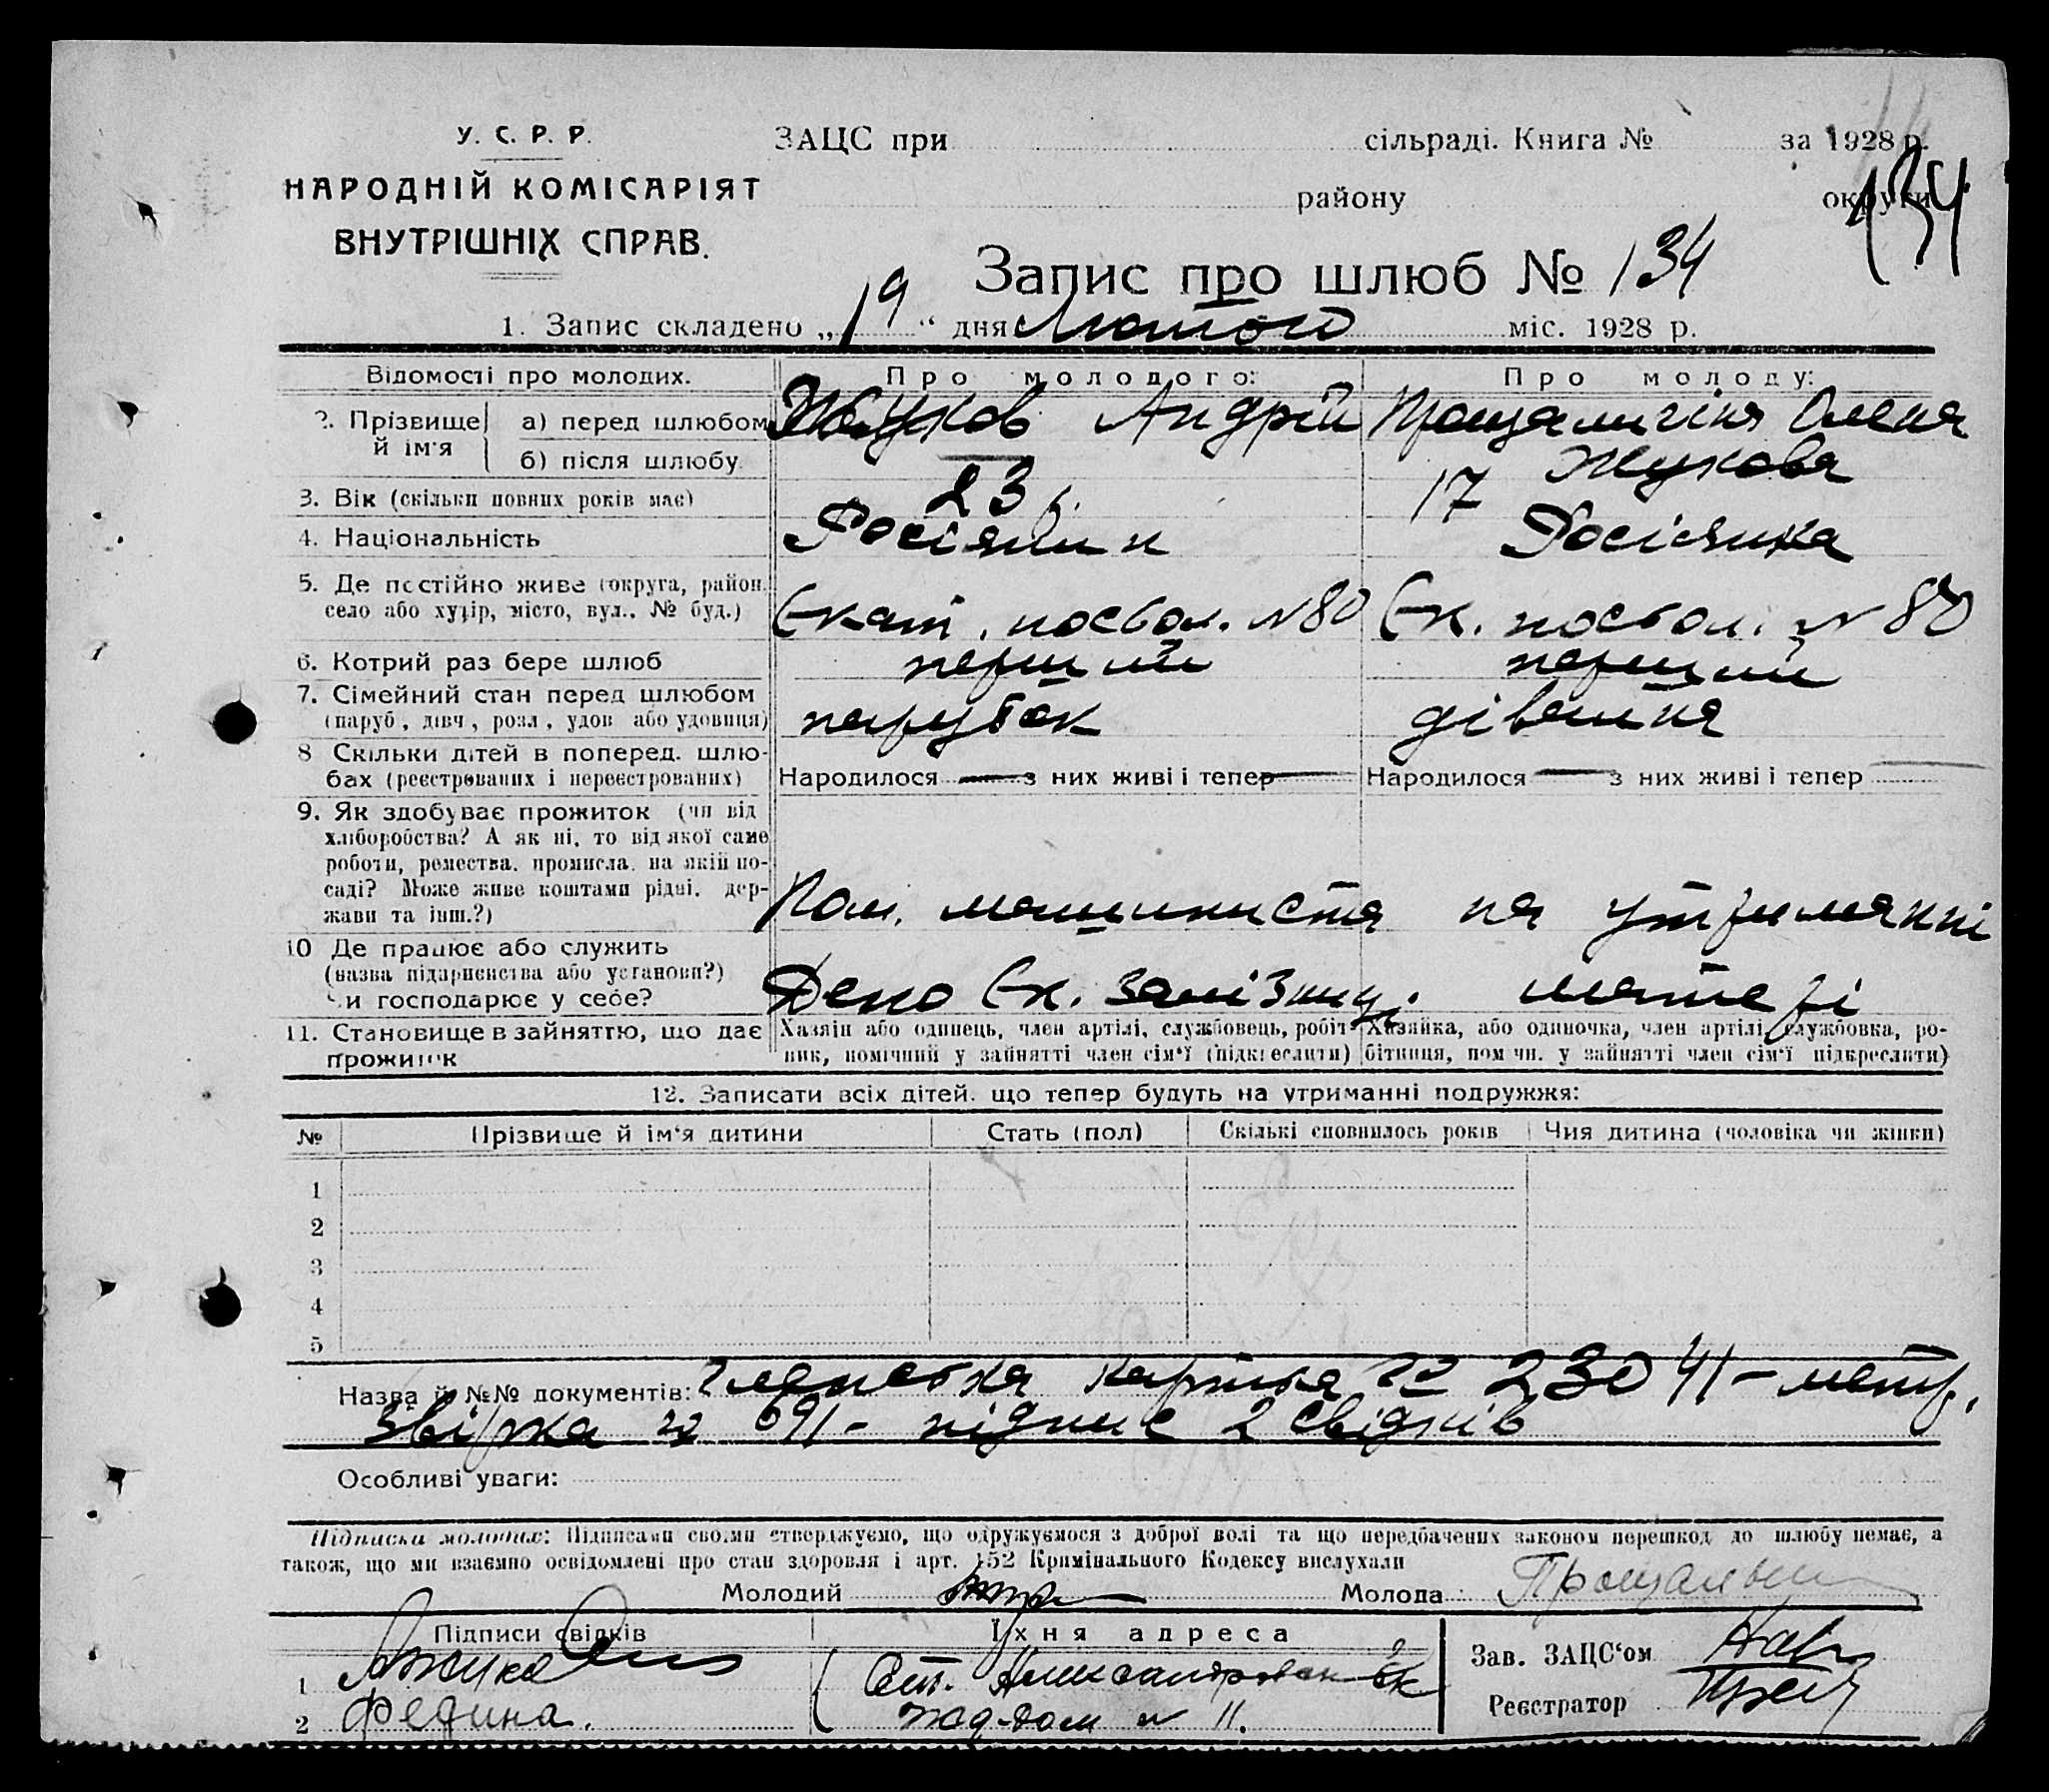 У. С. Р. Р.
НАРОДНІЙ КОМІСАРІЯТ
ВНУТРІШНІХ СПРАВ.
ЗАЦС при сільраді. Книга № за 1928 р.
району округи
134
Запис про шлюб № 134
1. Запис складено „19“ дня Лютого міс. 1928 р.
Відомості про молодих. Про молодого: Про молоду:
2. Прізвище й ім'я а) перед шлюбом Жуков Андрій Олена
б) після шлюбу Жукова
3. Вік (скільки повних років має) 23 р. 17
4. Національність Росіянин Росіянка
5. Де постійно живе (округа, район,
село або хутір, місто, вул., № буд.) Екат. посьол. N 80 Ек. посьол. N 80
6. Котрий раз бере шлюб перший перший
7. Сімейний стан перед шлюбом
(паруб., дівч., розл., удов або удовиця) парубок дівчина
8 Скільки дітей в поперед. шлю-
бах (реєстрованих і нереєстрованих) Народилося — з них живі і тепер — Народилося — з них живі і тепер —
9. Як здобуває прожиток (чи від
хліборобства? А як ні, то від якої саме
роботи, ремества, промисла, на якій по-
саді? Може живе коштами рідні, дер-
жави та інш.?) Пом. машиниста на утриманні
10 Де працює або служить
(назва підприємства або установи?)
Чи господарює у себе? Депо Ек. залізниц. матері
11. Становище в зайняттю, що дає
прожиток
Хазяїн або одинець, член артілі, службовець, робіт-
ник, помічний у зайнятті член сім'ї (підкреслити)
Хазяйка, або одиночка, член артілі, службовка, ро-
бітниця, помічн. у зайнятті член сім'ї підкреслити)
12. Записати всіх дітей, що тепер будуть на утриманні подружжя:
№ Прізвище й ім'я дитини Стать (пол) Скількі сповнилось років Чия дитина (чоловіка чи жінки)
1
2
3
4
5
Назва й №№ документів: членська картка № 23041 – метр.
звірка № 691 – підпис 2 свідків
Особливі уваги:
Підписи молодих: Підписами своїми стверджуємо, що одружуємося з доброї волі та що передбачених законом перешкод до шлюбу немає, а
також, що ми взаємно освідомлені про стан здоровля і арт. 152 Кримінального Кодексу вислухали
Молодий Молода
Підписи свідків Їхня адреса
Зав. ЗАЦС'ом
1 Ст. Александровск Ек
Реєстратор
2 Федина. жд-дом N 11.